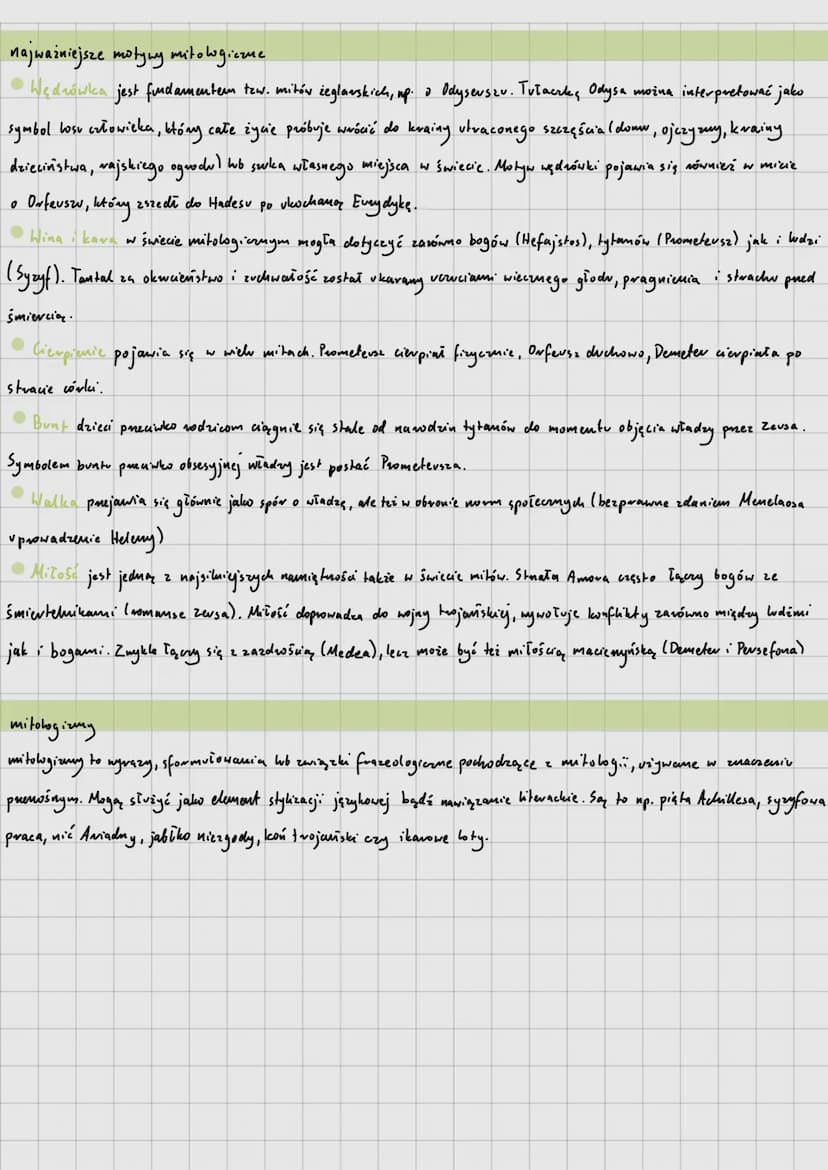 najważniejsze motywy mitologiczne
Wędrówka jest fundamentem tzw. mitów żeglarskich, np. o Odyseuszu. Tułaczkę Odysa można interpretować jako
symbol losu człowieka, który całe życie próbuje wrócić do krainy utraconego szczęścia (domu, ojczyzny, krainy
dzieciństwa, rajskiego ogrodu) lub szuka własnego miejsca w świecie. Motyw wędrówki pojawia się również w micie
o Orfeuszu, który zszedł do Hadesu po ukochaną Eurydykę.
Wina i kara w świecie mitologicznym mogła dotyczyć zarówno bogów (Hefajstos), tytanów (Prometeusz) jak i ludzi
(Syzyf). Tantal za okrucieństwo i zuchwałość został ukarany uczuciami wiecznego głodu, pragnienia i strachu przed
śmiercią.
Cierpienie pojawia się w wielu mitach. Prometeusz cierpiał fizycznie, Orfeusz duchowo, Demeter cierpiała po
stracie córki.
Bunt dzieci przeciwko rodzicom ciągnie się stale od narodzin tytanów do momentu objęcia władzy przez Zeusa.
Symbolem buntu przeciwko obsesyjnej władzy jest postać Prometeusza.
Walka przejawia się głównie jako spór o władzę, ale też w obronie norm społecznych (bezprawne zdaniem Menelaosa
uprowadzenie Heleny)
Miłość jest jedną z najsilniejszych namiętności także w świecie mitów. Strzała Amora często łączy bogów ze
śmiertelnikami (romanse Zeusa). Miłość doprowadza do wojny trojańskiej, wywołuje konflikty zarówno między ludźmi
jak i bogami. Zwykle łączy się z zazdrością (Medea), lecz może być też miłością macierzyńską (Demeter i Persefona)
mitologizmy
mitologizmy to wyrazy, sformułowania lub związki frazeologiczne pochodzące z mitologii, używane w znaczeniu
przenośnym. Mogą służyć jako element stylizacji językowej bądź nawiązanie literackie. Są to np. pięta Achillesa, syzyfowa
praca, nić Ariadny, jabłko niezgody, koń trojański czy ikarowe loty.